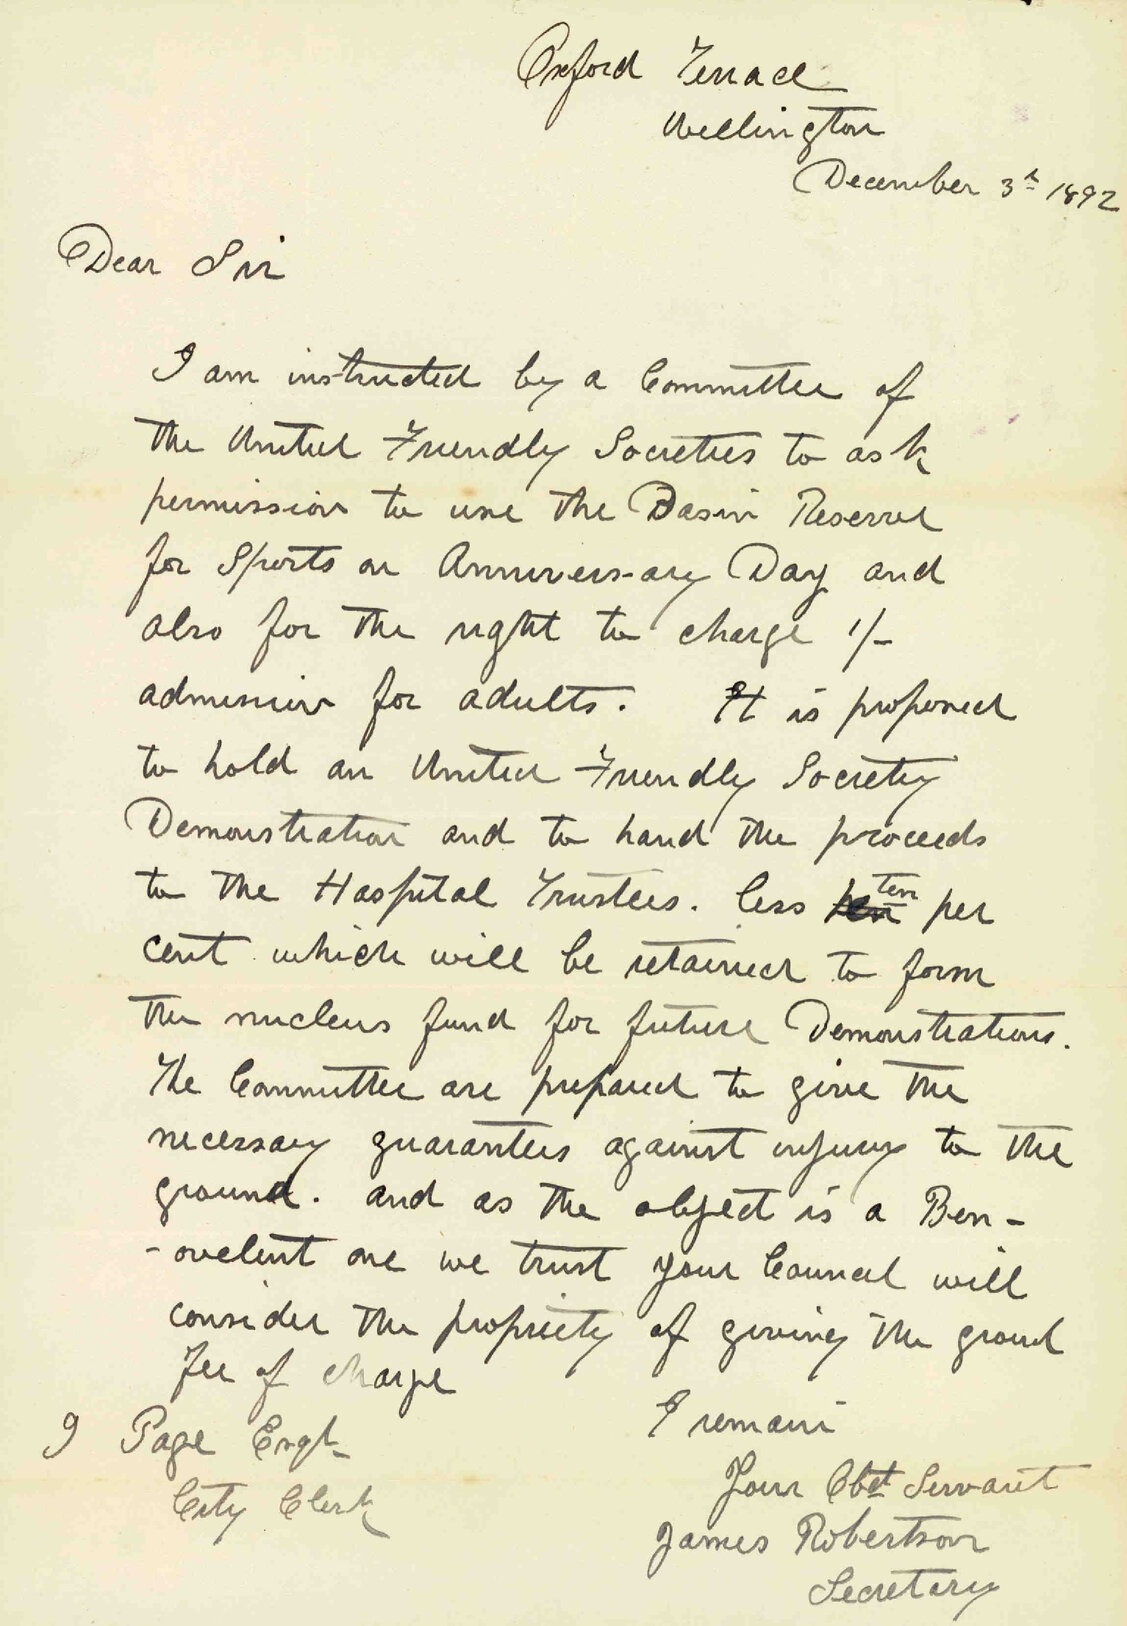 Oxford Terrace
Wellington
December 3rd 1892
Dear Sir
I am instructed by a Committee of
the United Friendly Societies to ask
permission to use the Basin Reserve
for Sports on Anniversary Day and
also for the right to charge 1/-
admission for adults. It is proposed
to hold an United Friendly Society
Demonstration and to hand the proceeds
to the Hospital Trustees. less ten per
cent which will be retained to form
the nucleus fund for future Demonstrations.
The Committee are prepared to give the
necessary guarantees against injury to the
ground. and as the object is a Ben-
-ovelent one we trust your Council will
consider the propriety of giving the ground
free of charge
I remain
J Page Esqr
City Clerk
Your Obdt Servant
James Robertson
Secretary